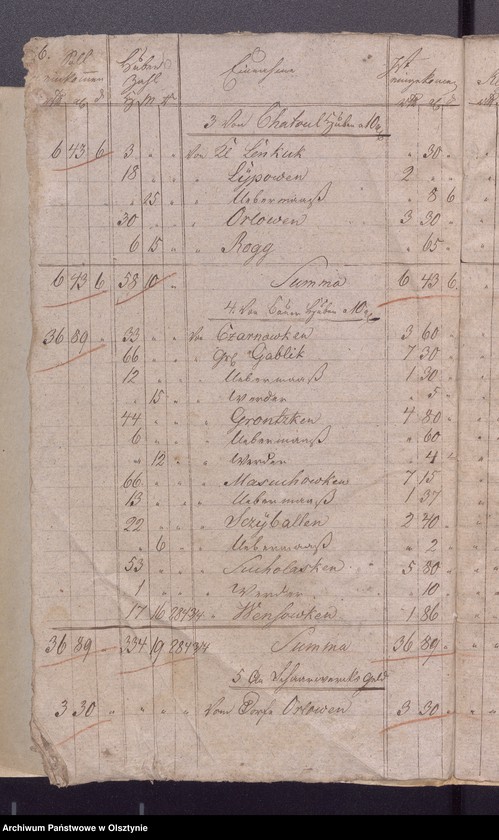 6. Soll Huben Einnahme Ist
einkommen Zahl eingekomen
3 Von Chatoul Huben a 10
6 43 6 3 " " Von Kl Lenkuk " 30 "
18 " " " Lÿpowen 2 " "
" 25 " " Uebermaaß " 8 6
30 " " " Orlowen 3 30 "
6 15 " " Rogg " 65 "
6 43 6 58 10 " Summa 6 43 6
4. Von Huben a 10
36 89 " 33 " " Von Czarnowken 3 60 "
66 " " " Gr. Gablik 7 30 "
12 " " " Uebermaaß 1 30 "
" 15 " " Werder " 5 "
44 " " " Grontzken 4 80 "
6 " " " Uebermaaß " 60 "
" 12 " " Werder " 4 "
66 " " " Masuchowken 7 15 "
13 " " " Uebermaaß 1 37 "
22 " " " Sczÿballen 2 40 "
" 6 " " Uebermaaß " 2 "
53 " " " Sucholasken 5 80 "
1 " " " Werder " 10 "
17 16 284 3/4 " Wensowken 1 86 "
36 89 " 334 19 284 3/4 Summa 36 89 "
5 An Schaarwerks Geld
3 30 " " " " Vom Dorfe Orlowen 3 30 "
Archiwum Państwowe w Olsztynie